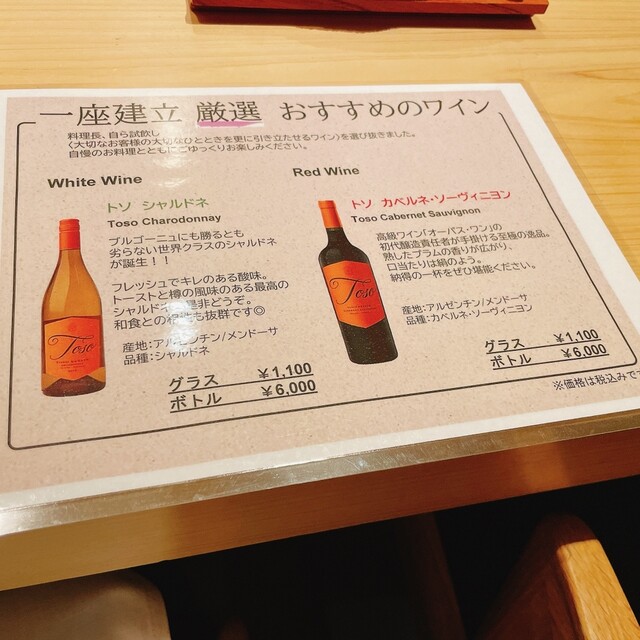 一座建立 厳選 おすすめのワイン
料理長、自ら試飲し
〈大切なお客様の大切なひとときを更に引き立たせるワイン〉を選び抜きました。
自慢のお料理とともにごゆっくりお楽しみください。
White Wine
トソ シャルドネ
Toso Charodonnay
ブルゴーニュにも勝るとも
劣らない世界クラスのシャルドネ
が誕生！！
フレッシュでキレのある酸味。
トーストと樽の風味のある最高の
シャルドネ 是非どうぞ。
和食との 性も抜群です◎
産地：アルゼンチン/メンドーサ
品種：シャルドネ
グラス ￥1,100
ボトル ￥6,000
Toso
Red Wine
トソ カベルネ・ソーヴィニヨン
Toso Cabernet Sauvignon
高級ワイン「オーパス・ワン」の
初代醸造責任者が手掛ける至極の逸品。
熟したプラムの香りが広がり、
口当たりは絹のよう。
納得の一杯をぜひ堪能ください。
産地：アルゼンチン/メンドーサ
品種：カベルネ・ソーヴィニヨン
グラス ￥1,100
ボトル ￥6,000
Toso
※価格は税込みで